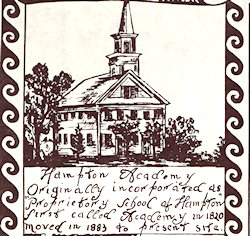 Hampton Academy
Originally incorporated as
Proprietory School of Hampton
first called Academy in 1820
moved in 1883 to present site.